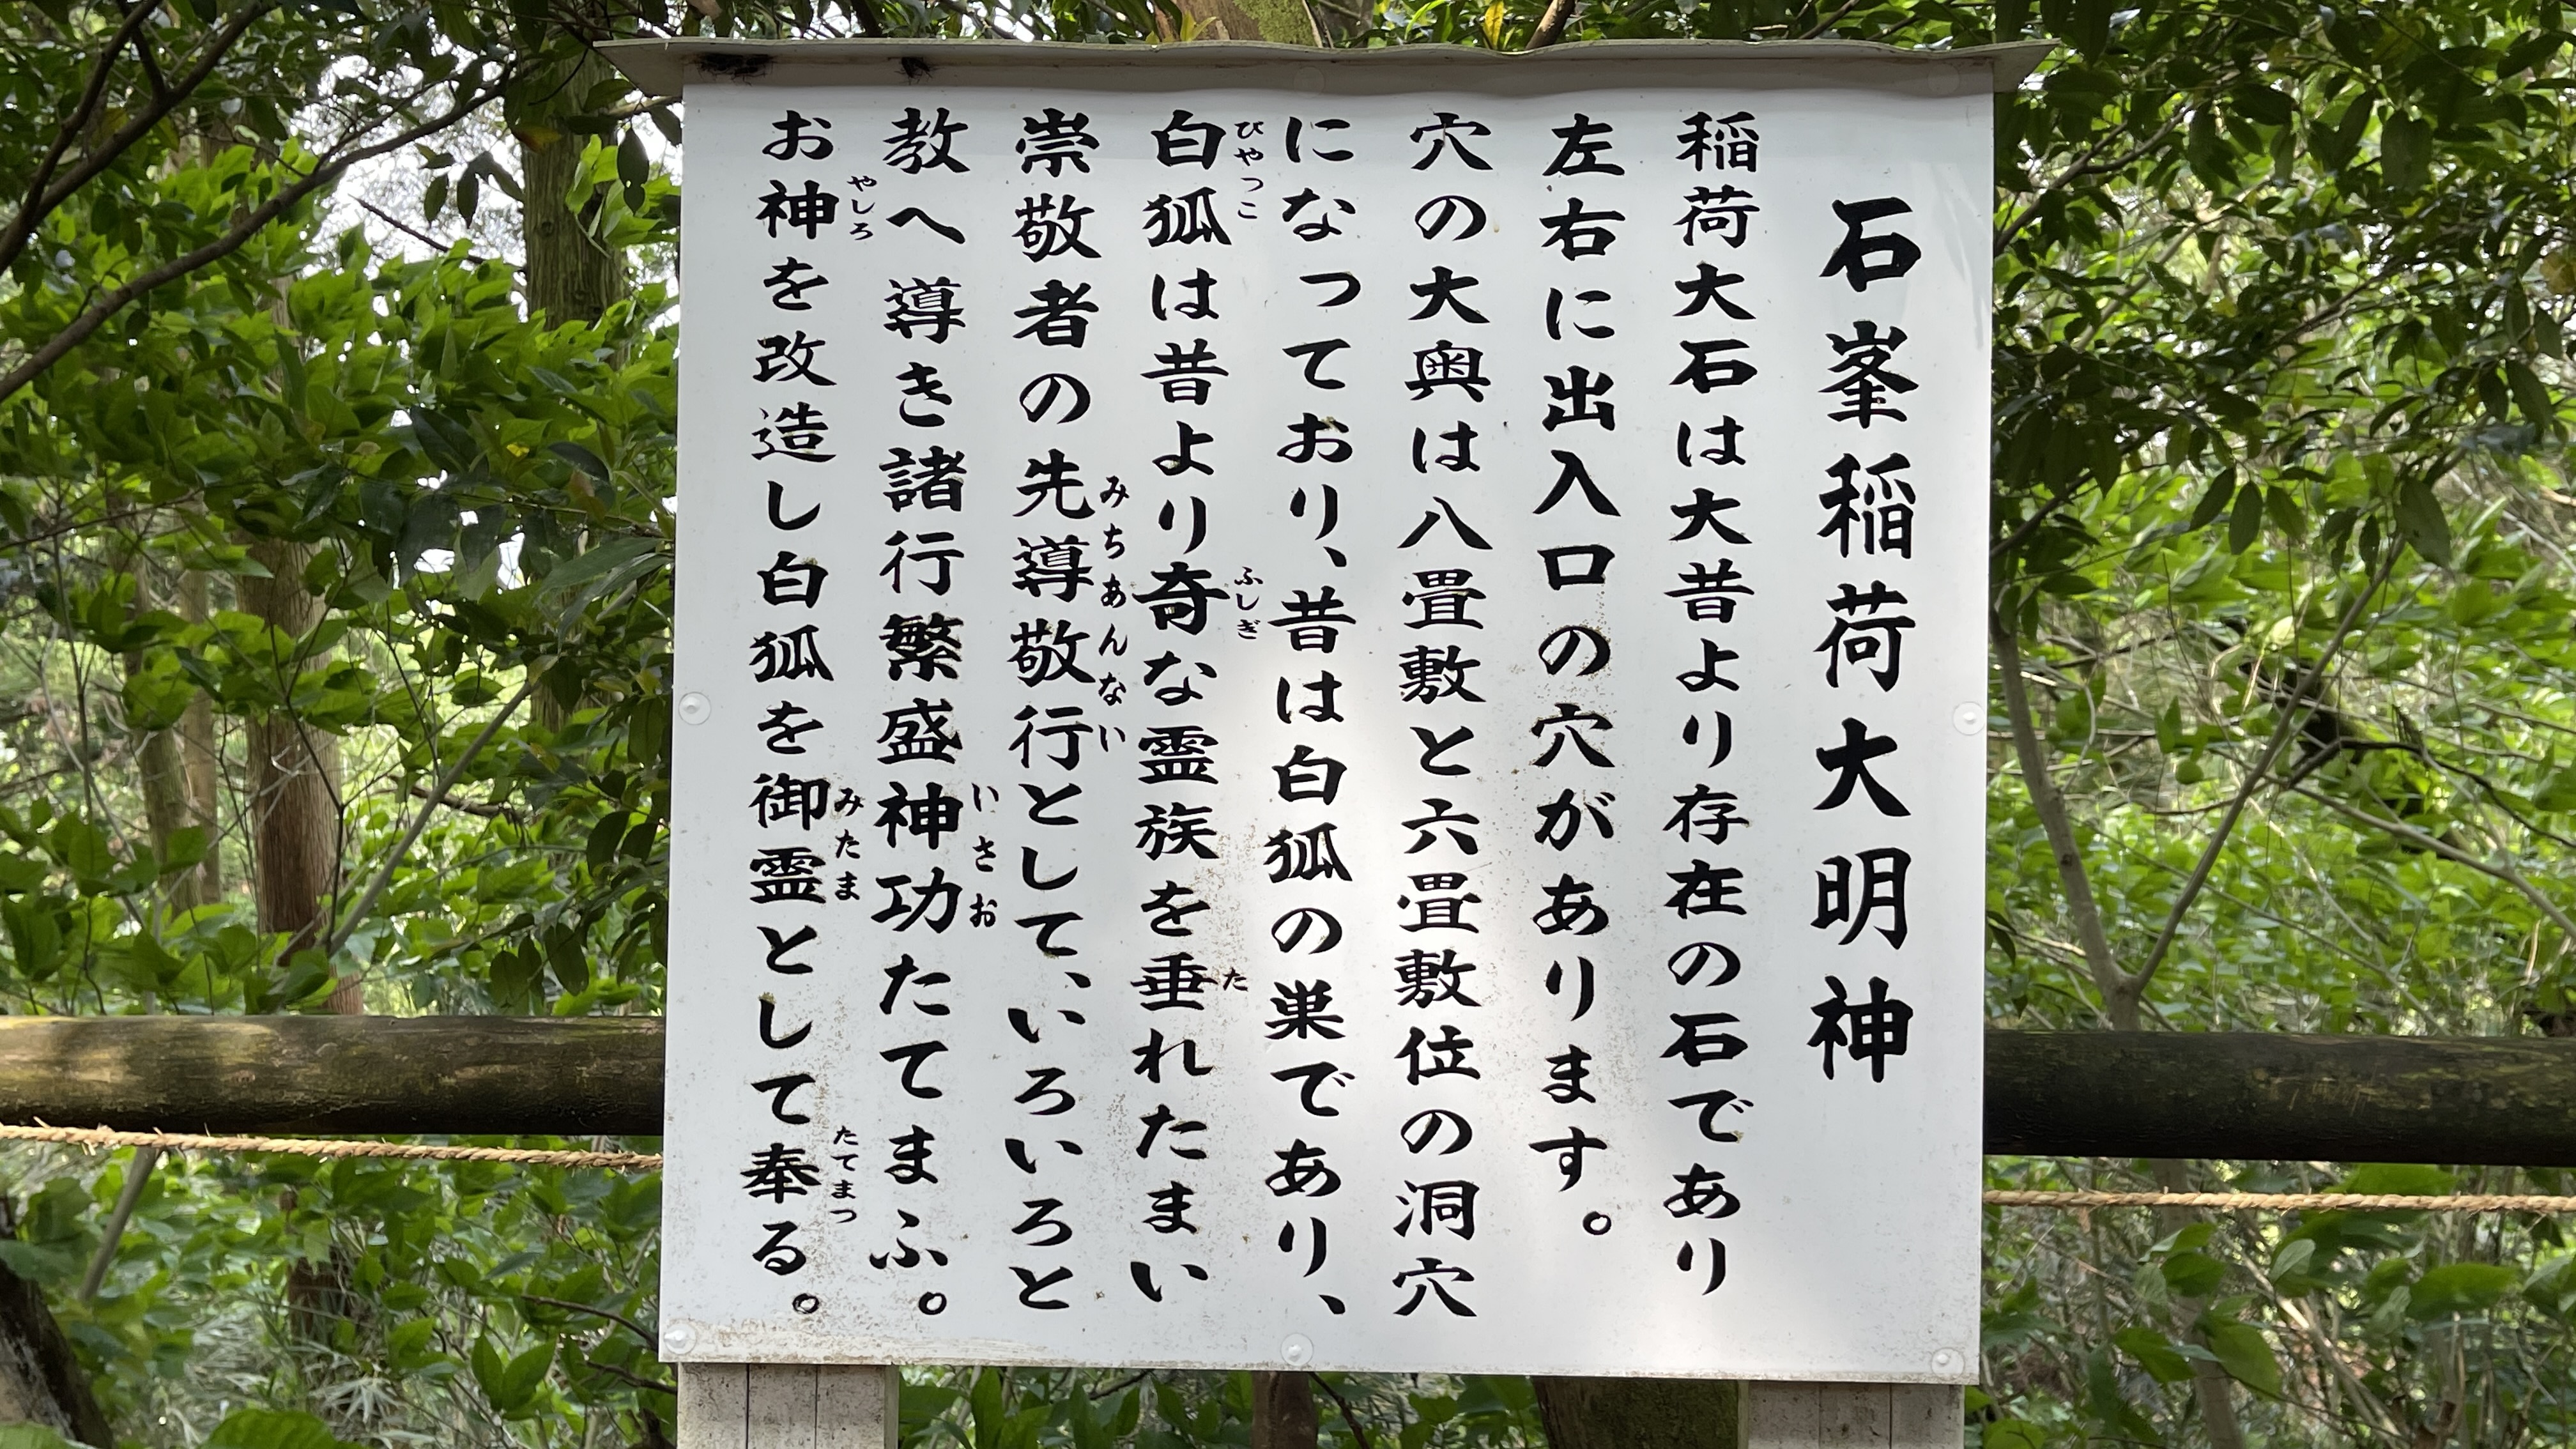 石峯稲荷大明神
稲荷大石は大昔より存在の石であり
左右に出入口の穴があります。
穴の大奥は八畳敷と六畳敷位の洞穴
になっており、昔は白狐の巣であり、
白狐は昔より奇な霊族を垂れたまい
ひやっこ
ふしぎ
た
崇敬者の先導敬行として、いろいろと
みちあんない
教へ導き諸行繁盛神功たてまふ。
いさお
お神を改造し白狐を御霊として奉る。
やしろ
みたま
たてまつ